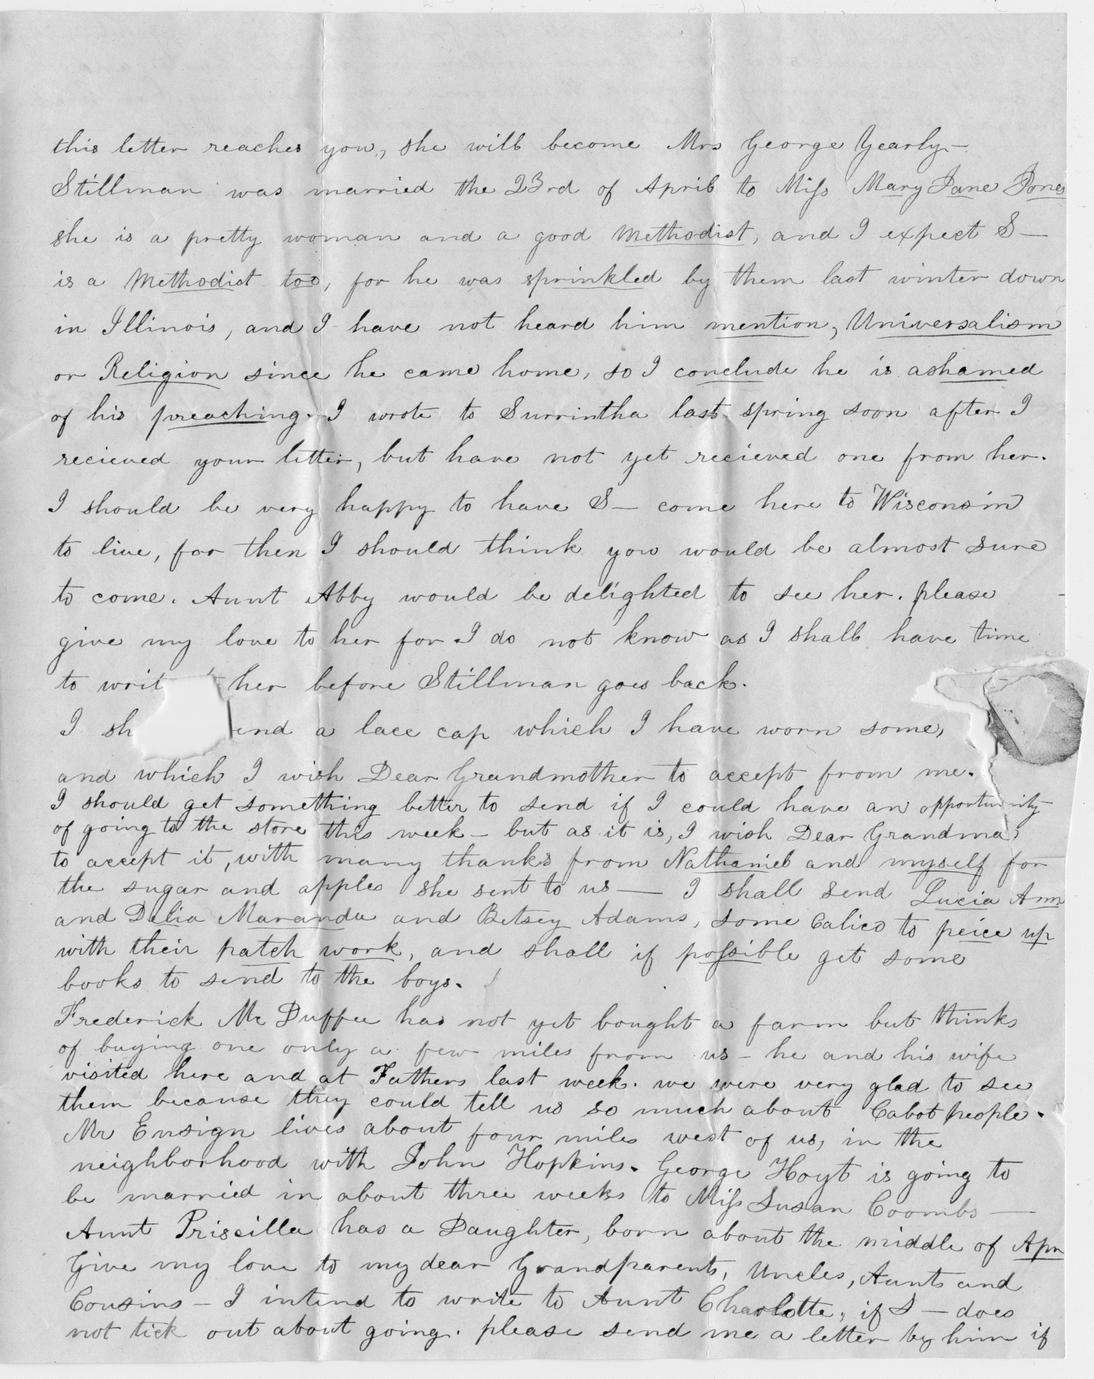 this letter reaches you, she will become Mrs George Yearly—
Stillman was married the 23rd of April to Miss Mary Jane Jones
she is a pretty woman and a good Methodist, and I expect S—
is a Methodist too, for he was sprinkled by them last winter down
in Illinois, and I have not heard him mention, Universalism
or Religion since he came home, so I conclude he is ashamed
of his preaching. I wrote to Surrintha last spring soon after I
recieved your letter, but have not yet recieved one from her.
I should be very happy to have S— come here to Wisconsin
to live, for then I should think you would be almost sure
to come. Aunt Abby would be delighted to see her. please
give my love to her for I do not know as I shall have time
to writ her before Stillman goes back.
I sh end a lace cap which I have worn some,
and which I wish Dear Grandmother to accept from me.
I should get something better to send if I could have an opportunity
of going to the store this week — but as it is, I wish Dear Grandma
to accept it, with many thanks from Nathaniel and myself for
the sugar and apples she sent to us — I shall send Lucia Ann
and Delia Maranda and Betsey Adams, some calico to peice up
with their patch work, and shall if possible get some
books to send to the boys.
Frederick Mc Duffee has not yet bought a farm but thinks
of buying one only a few miles from us — he and his wife
visited here and at Fathers last week. we were very glad to see
them because they could tell us so much about Cabot people.
Mr Ensign lives about four miles west of us, in the
neighborhood with John Hopkins. George Hoyt is going to
be married in about three weeks to Miss Susan Coombs —
Aunt Priscilla has a Daughter, born about the middle of Apr
Give my love to my dear Grandparents, Uncles, Aunts and
Cousins — I intend to write to Aunt Charlotte, if S — does
not tick out about going. please send me a letter by him if